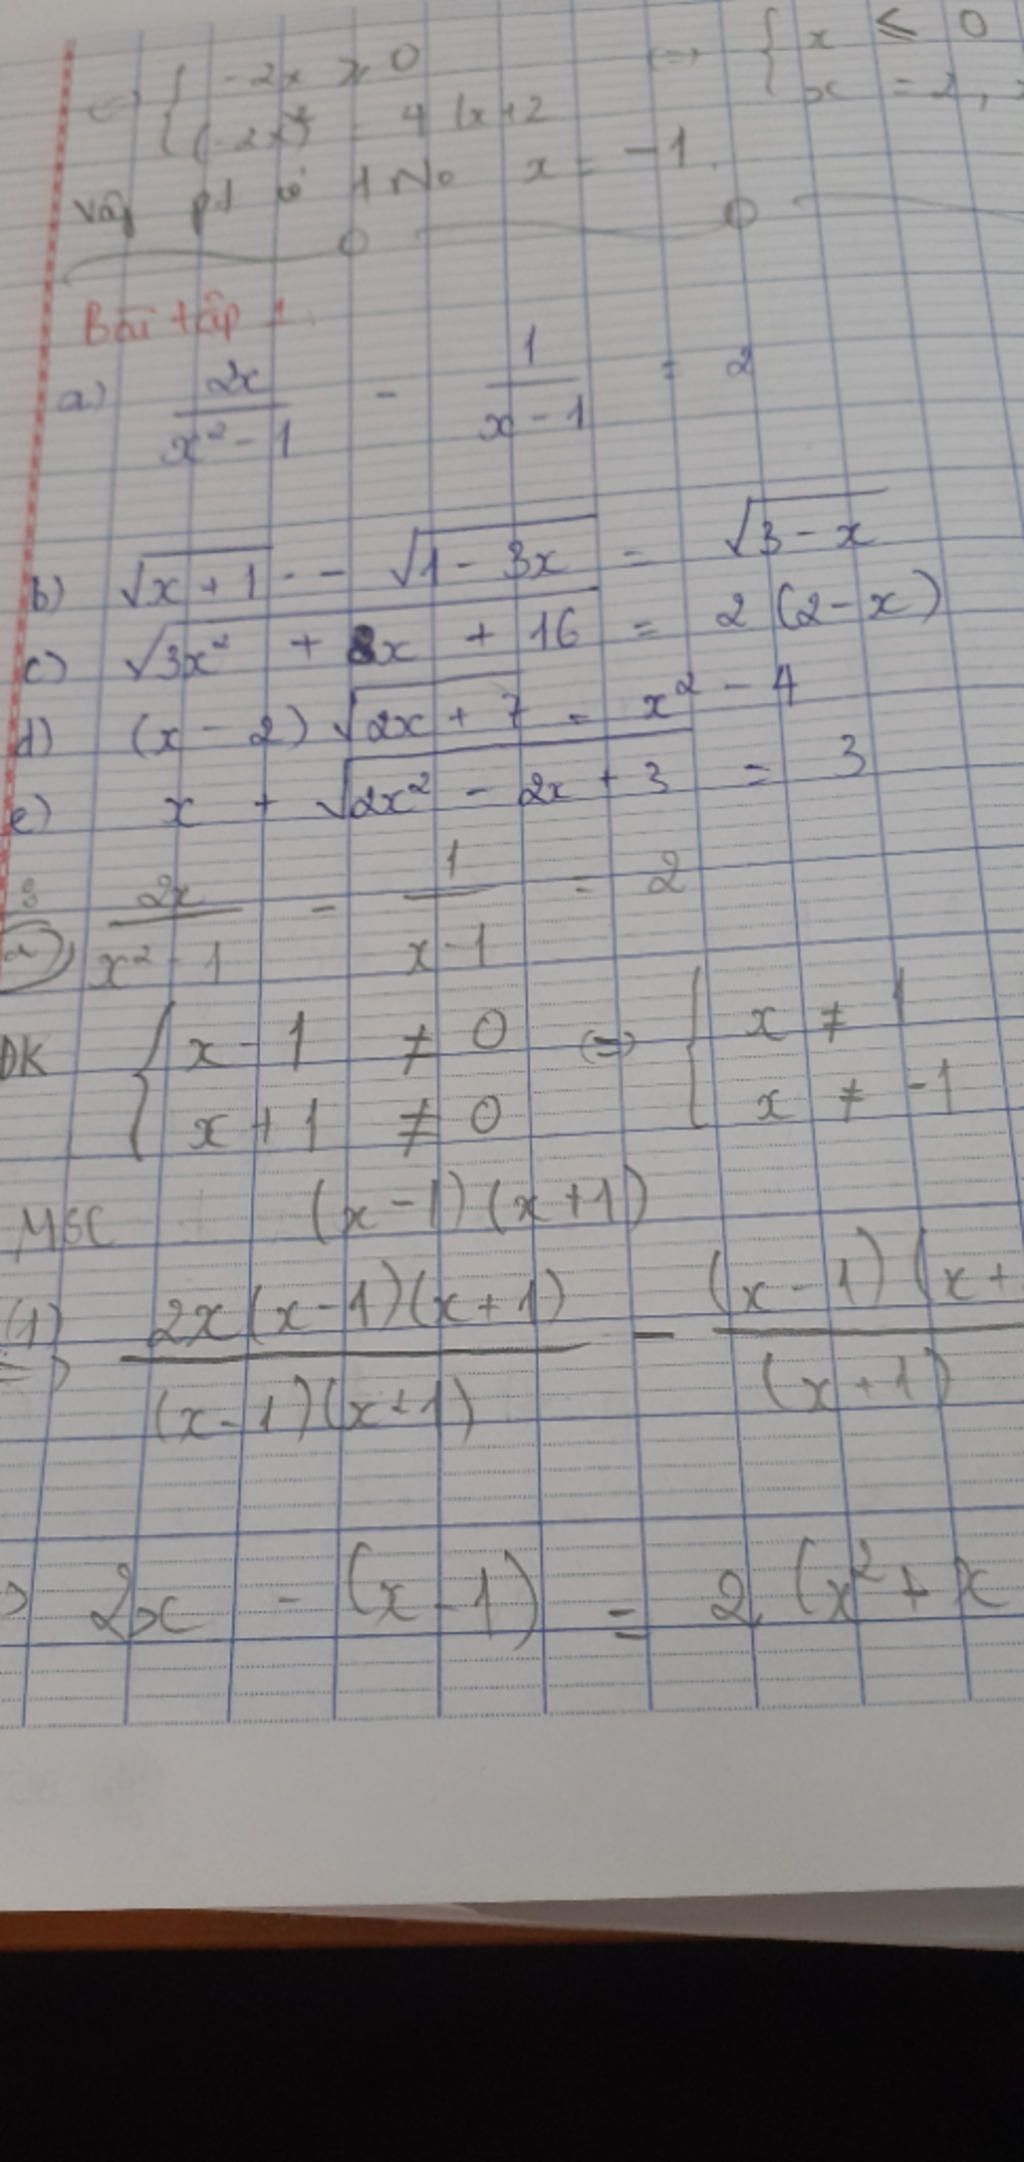 ⇔ { -2x ≥ 0 ⇔ { x ≤ 0
(-2x)² = 4(x+2 x = 2,
Vậy pt có 1 No x = -1.
Bài tập 1.
a) 2x/(x² - 1) - 1/(x - 1) = 2
b) √(x + 1) - √(1 - 3x) = √(3 - x)
c) √(3x² + 8x + 16) = 2(2 - x)
d) (x - 2)√(2x + 7) = x² - 4
e) x + √(2x² - 2x + 3) = 3
a) 2x/(x² - 1) - 1/(x - 1) = 2
ĐK { x - 1 ≠ 0 ⇔ { x ≠ 1
x + 1 ≠ 0 x ≠ -1
MSC (x - 1)(x + 1)
(1) ⇒ 2x(x - 1)(x + 1)/((x - 1)(x + 1)) - (x - 1)(x +/(x + 1)
2x - (x - 1) = 2(x² + x